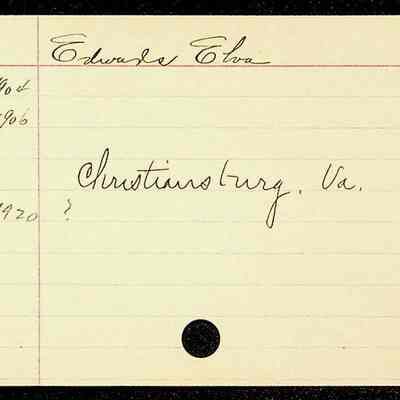 Edwards Elva
904
906
Christiansburg, Va.
1920 ?